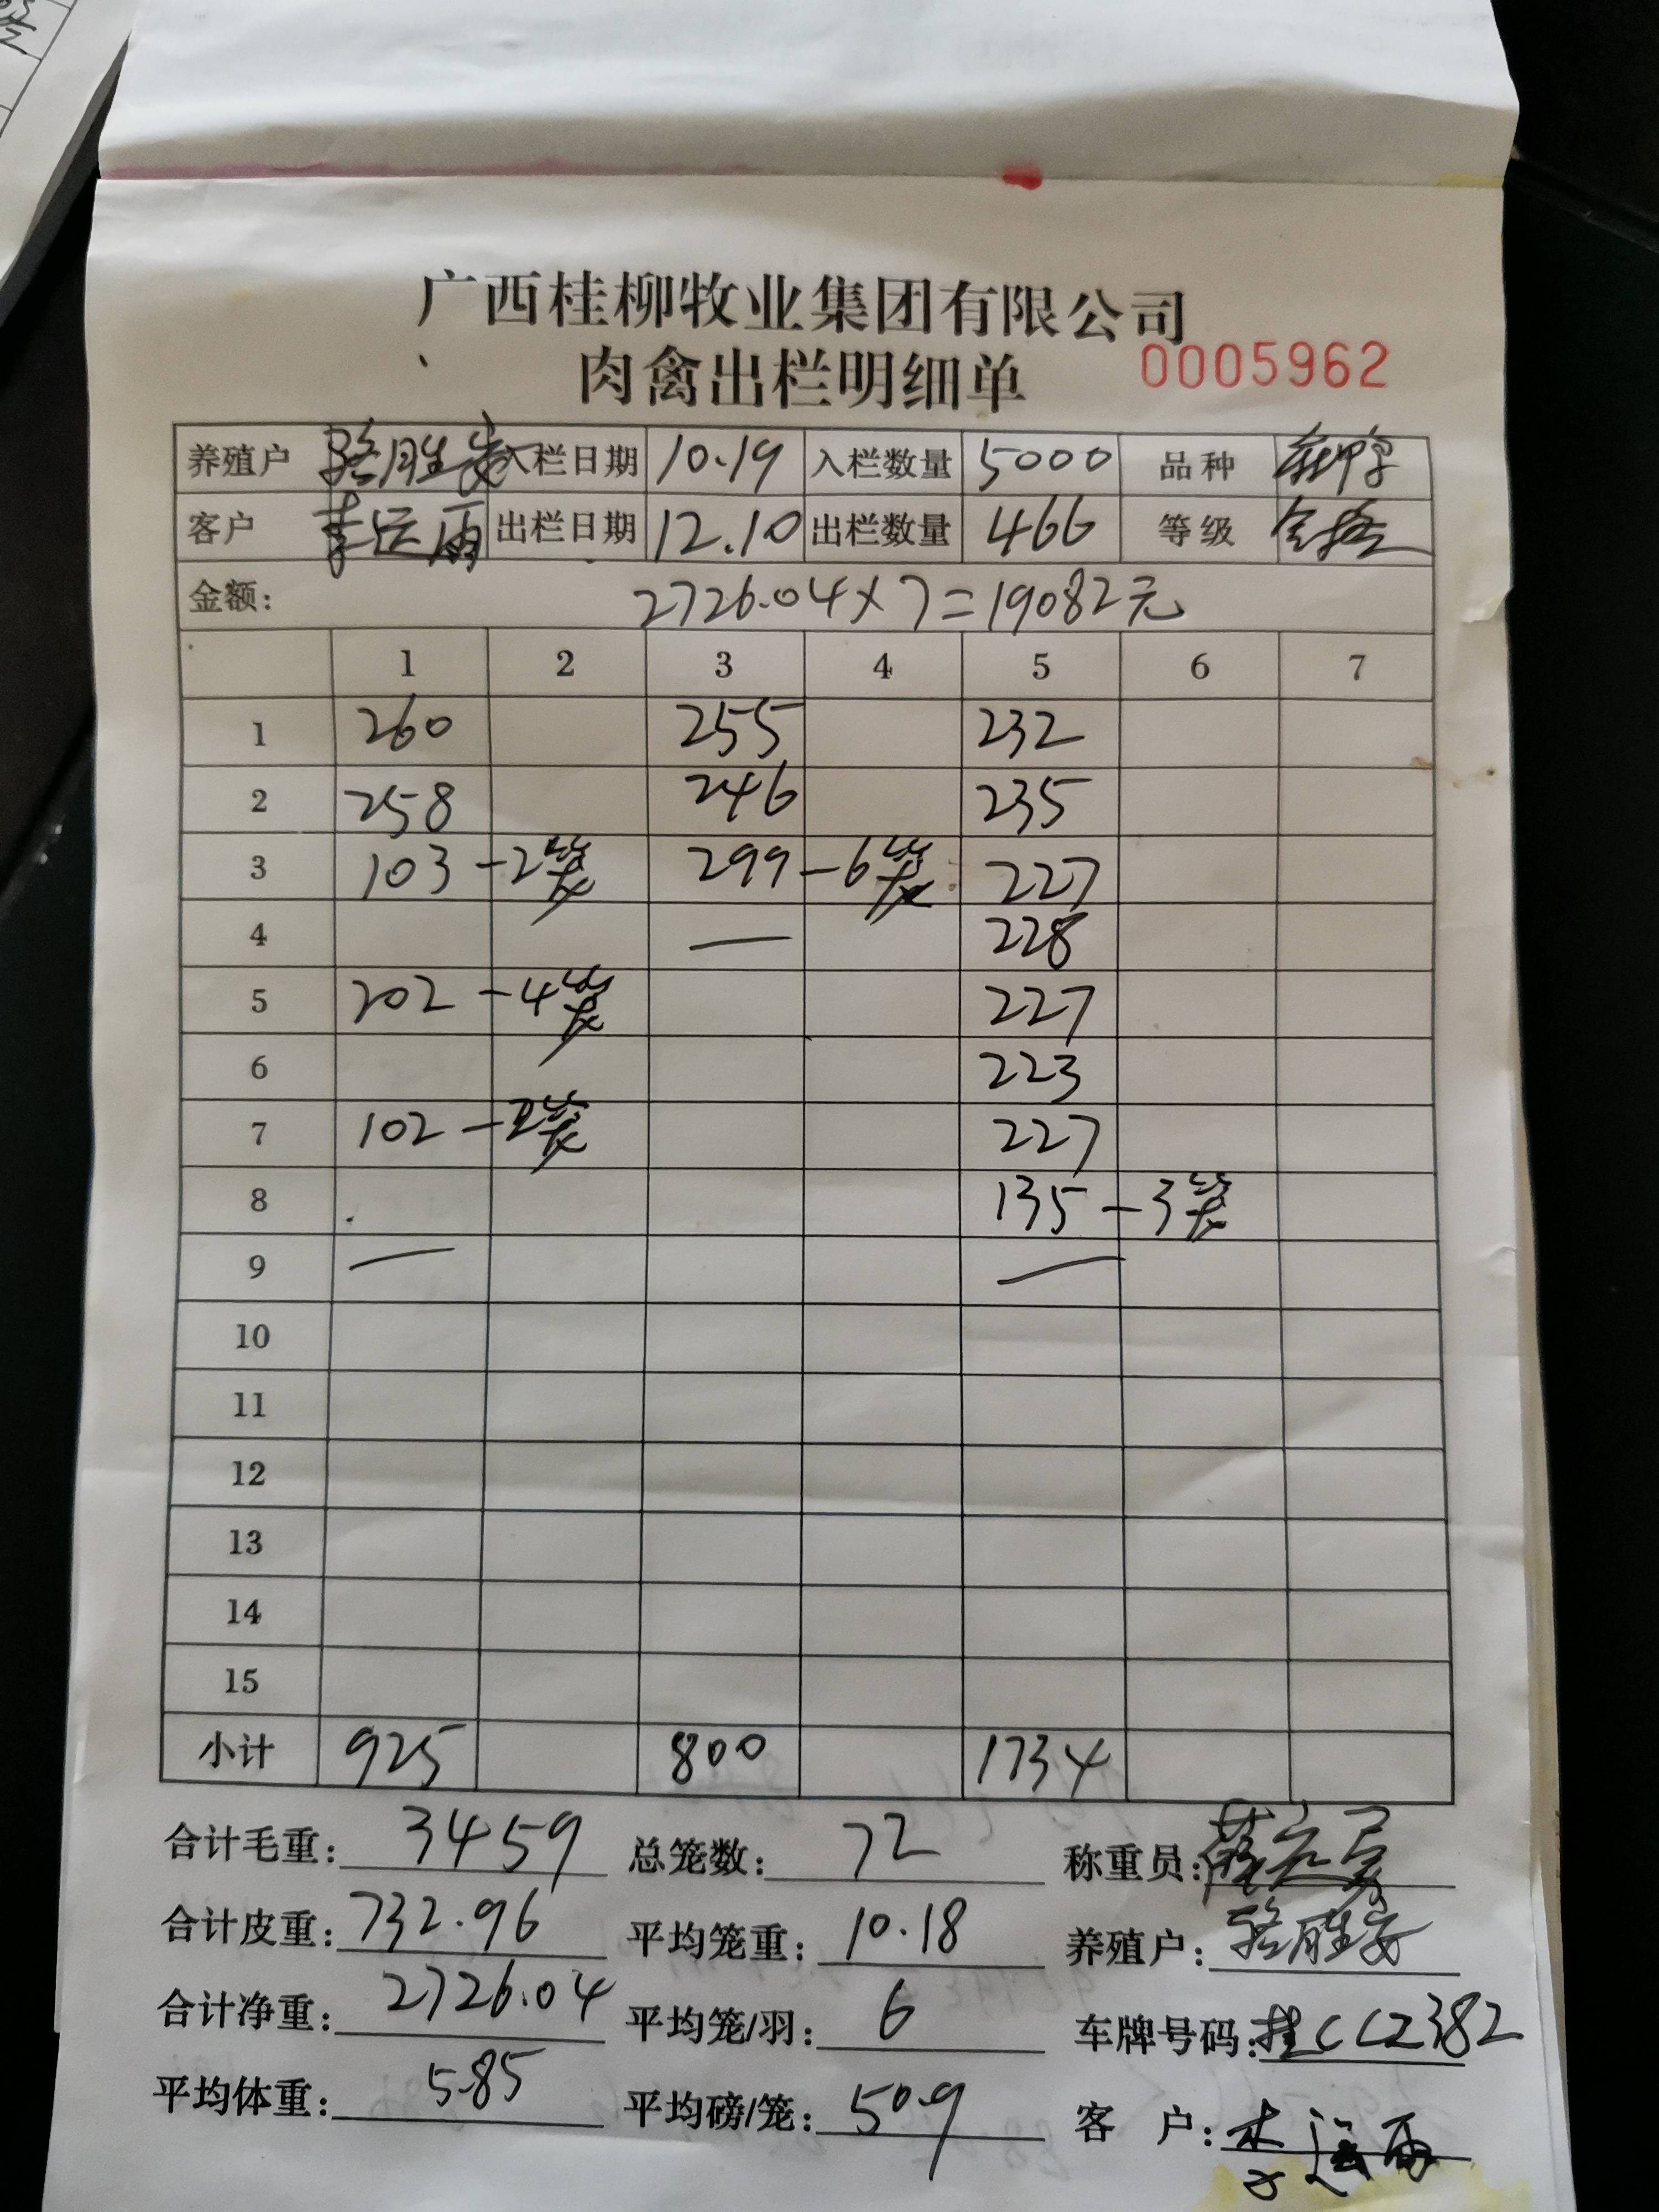 广西桂柳牧业集团有限公司
肉禽出栏明细单 0005962
养殖户 骆胜 入栏日期 10.19 入栏数量 5000 品种
客户 李运雨 出栏日期 12.10 出栏数量 466 等级
金额: 2726.04×7=19082元
1 2 3 4 5 6 7
1 260 255 232
2 258 246 235
3 103-2笼 299-6笼 227
4 — 228
5 202-4笼 227
6 223
7 102-2笼 227
8 135-3笼
9 — —
10
11
12
13
14
15
小计 925 800 1734
合计毛重: 3459 总笼数: 72 称重员:
合计皮重: 732.96 平均笼重: 10.18 养殖户: 骆胜
合计净重: 2726.04 平均笼/羽: 6 车牌号码: 桂CCZ382
平均体重: 5.85 平均磅/笼: 50.9 客 户: 李运雨